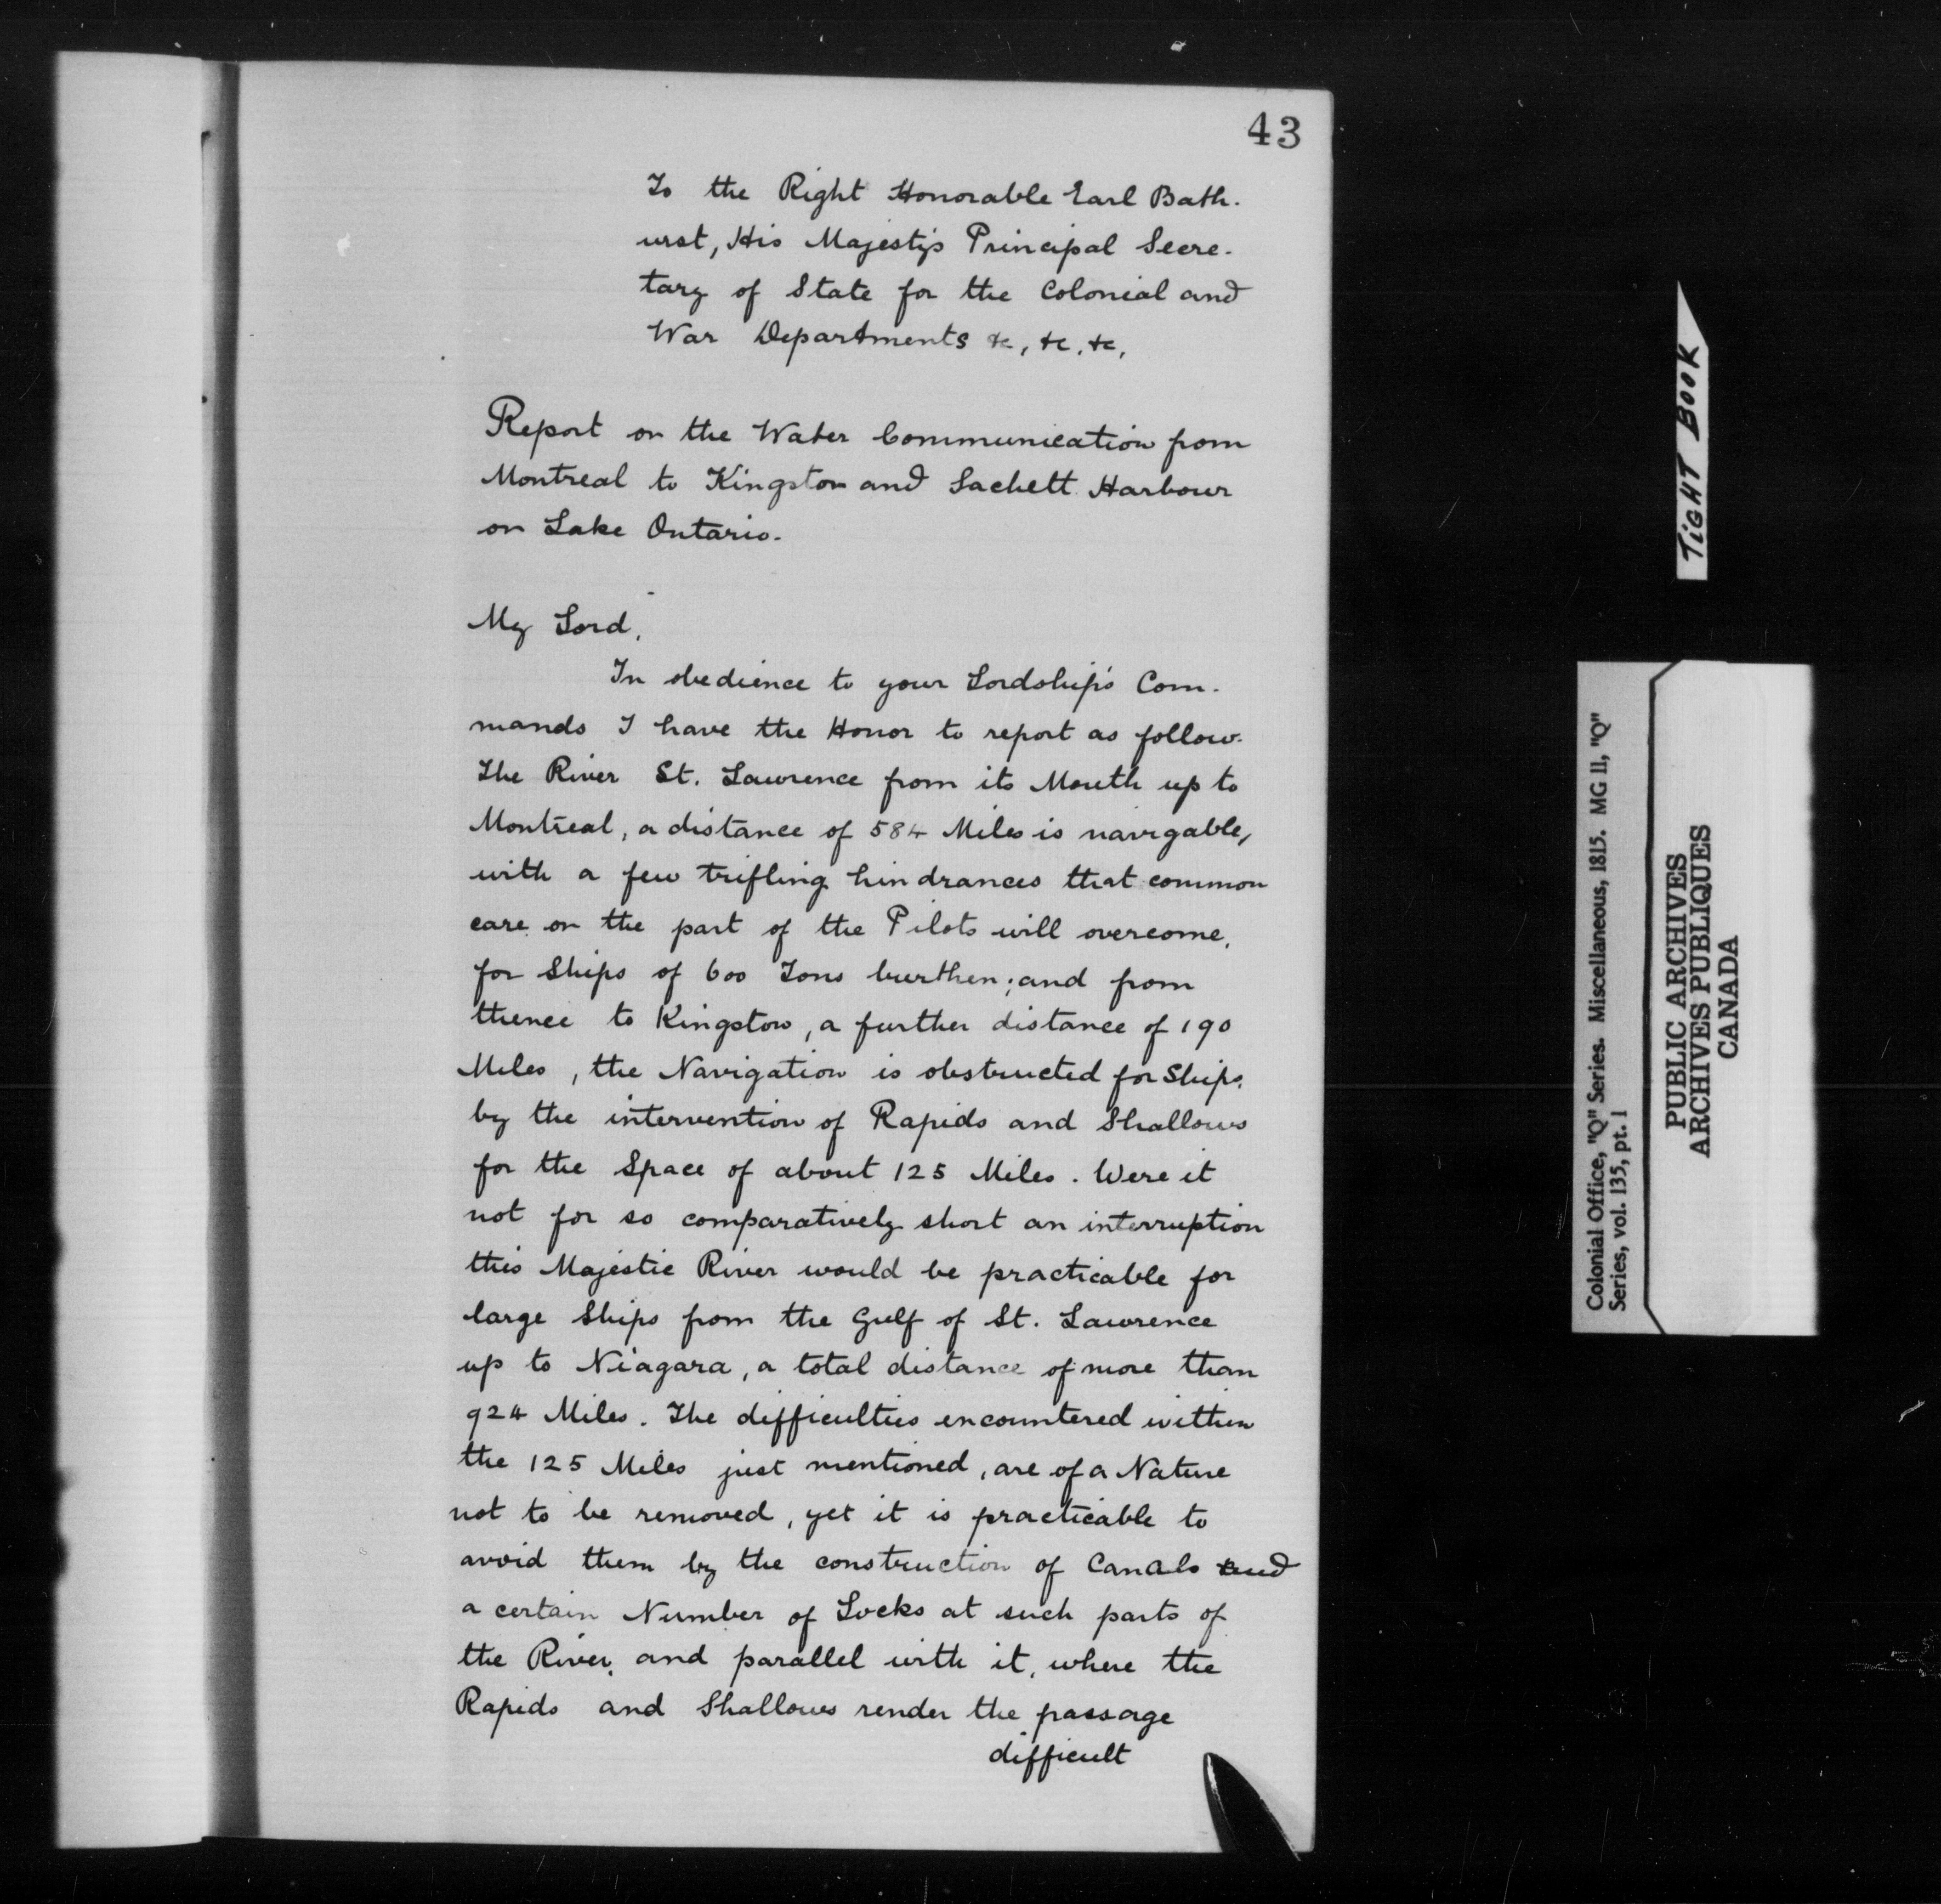 43
To the Right Honorable Earl Bath-
urst, His Majesty's Principal Secre-
tary of State for the Colonial and
War Departments &c, &c, &c,
Report on the Water Communication from
Montreal to Kingston and Sackett Harbour
on Lake Ontario.
My Lord,
In obedience to your Lordship's Com-
mands I have the Honor to report as follow.
The River St. Lawrence from its Mouth up to
Montreal, a distance of 584 Miles is navigable,
with a few trifling hindrances that common
care on the part of the Pilots will overcome,
for Ships of 600 Tons burthen; and from
thence to Kingston, a further distance of 190
Miles, the Navigation is obstructed for Ships,
by the intervention of Rapids and Shallows
for the Space of about 125 Miles. Were it
not for so comparatively short an interruption
this Majestic River would be practicable for
large Ships from the Gulf of St. Lawrence
up to Niagara, a total distance of more than
924 Miles. The difficulties encountered within
the 125 Miles just mentioned, are of a Nature
not to be removed, yet it is practicable to
avoid them by the construction of Canals and
a certain Number of Locks at such parts of
the River, and parallel with it, where the
Rapids and Shallows render the passage
difficult
TIGHT BOOK
Colonial Office, "Q" Series. Miscellaneous, 1815. MG 11, "Q"
Series, vol. 135, pt. 1
PUBLIC ARCHIVES
ARCHIVES PUBLIQUES
CANADA